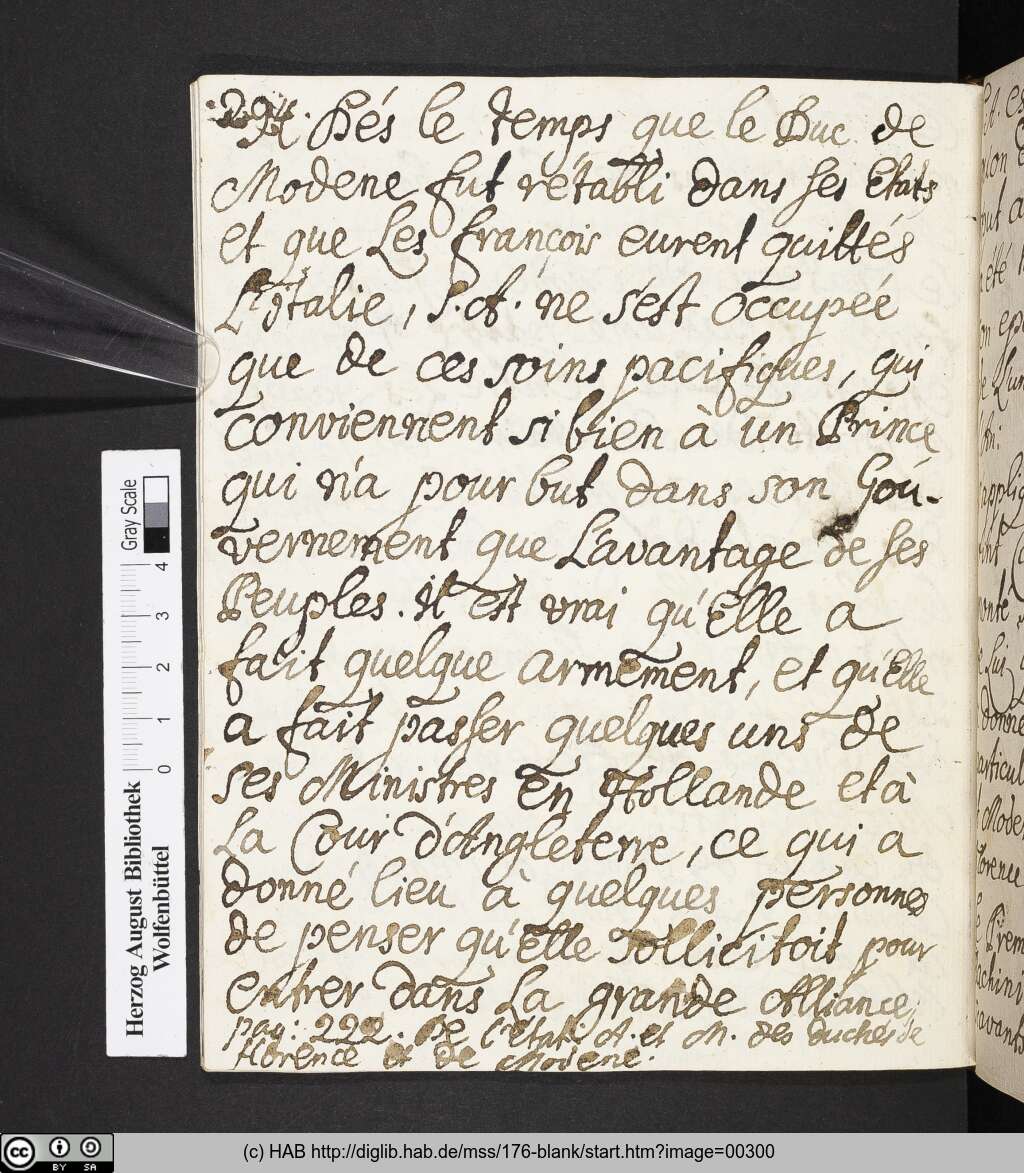 294. Dés le temps que le Duc de
Modene fut rétabli dans ses Etats
et que Les françois eurent quittés
L'Italie, S. A. ne s'est occupée
que de ces soins pacifiques, qui
conviennent si bien à un Prince
qui n'a pour but dans son Gou-
vernement que L'avantage de ses
Peuples. il est vrai qu'Elle a
fait quelque armement, et qu'Elle
a fait passer quelques uns de
ses Ministres en Hollande et à
La Cour d'Angleterre, ce qui a
donné lieu à quelques personnes
de penser qu'Elle sollicitoit pour
entrer dans La grande Alliance,
pag: 222. De l'etat: A. et M. des duchés de
florence et de Modene.
Gray Scale
0 1 2 3 4
Herzog August Bibliothek
Wolfenbüttel
cc BY SA
(c) HAB http://diglib.hab.de/mss/176-blank/start.htm?image=00300